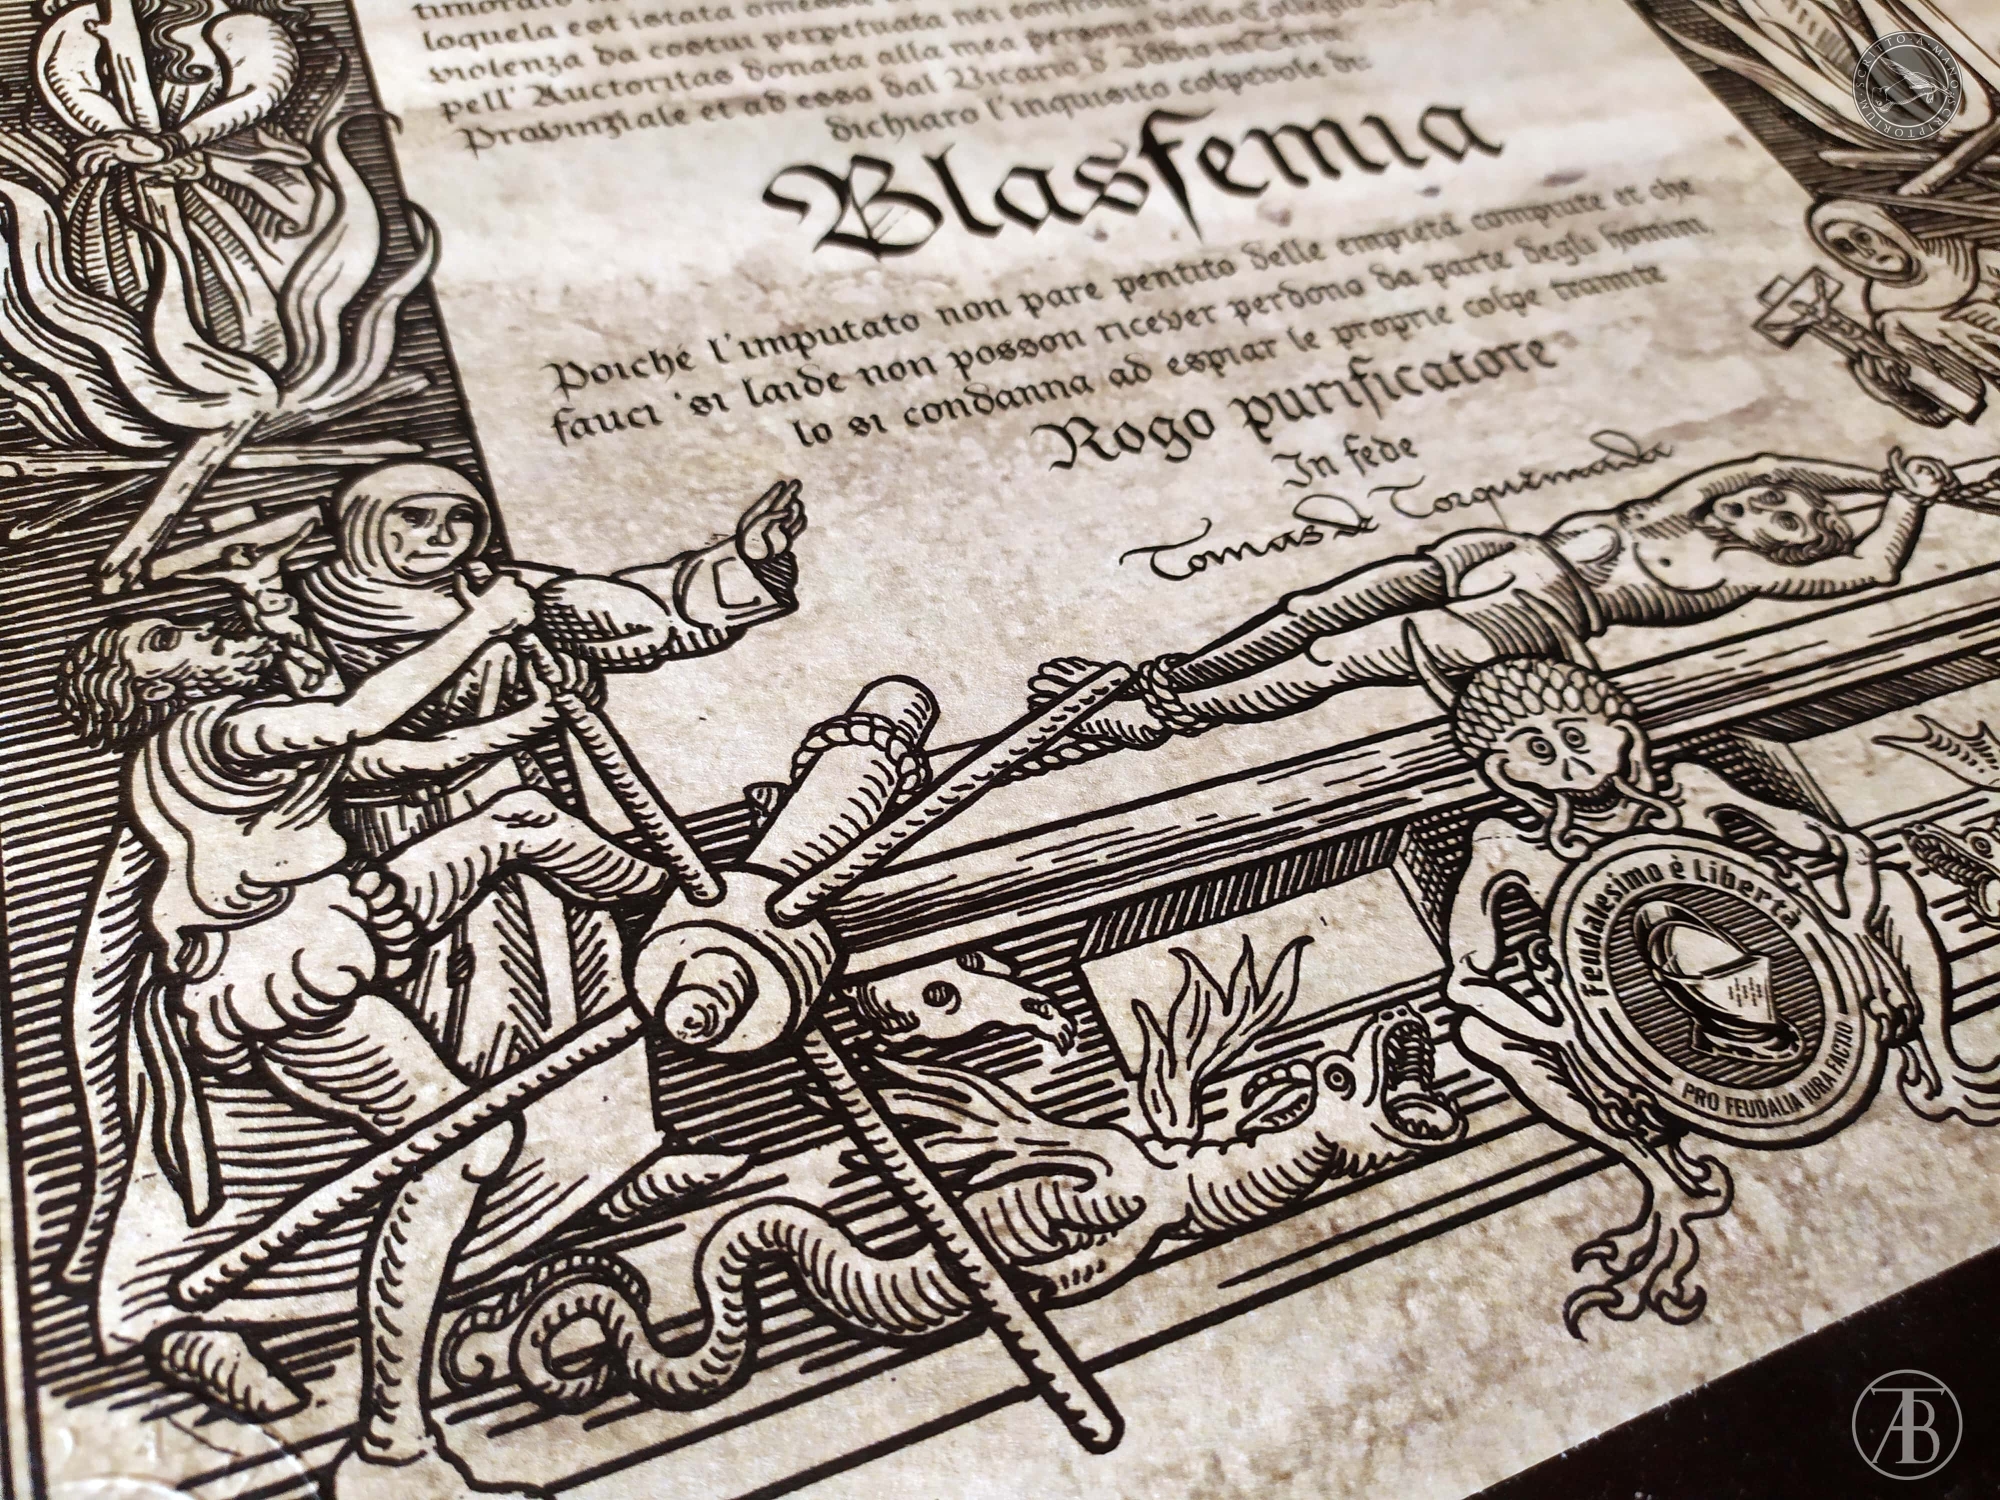 timorato
loquela est istata omessa
violenza da costui perpetuata nei confronti
pell' Auctoritas donata alla mea persona dallo Collegio
Provinziale et ad essa dal Vicario d' Iddio in Terra
dichiaro l'inquisito colpevole di:
Blasfemia
Poiché l'imputato non pare pentito delle empietà compiute et che
fauci 'si laide non posson ricever perdono da parte degli homini,
lo si condanna ad espiar le proprie colpe tramite
Rogo purificatore
In fede
Tomas de Torquemada
Feudalesimo è Libertà
PRO FEUDALIA IURA FACTIO
SCRITTO·A·MANO
SCRIPTORIUM
TAB